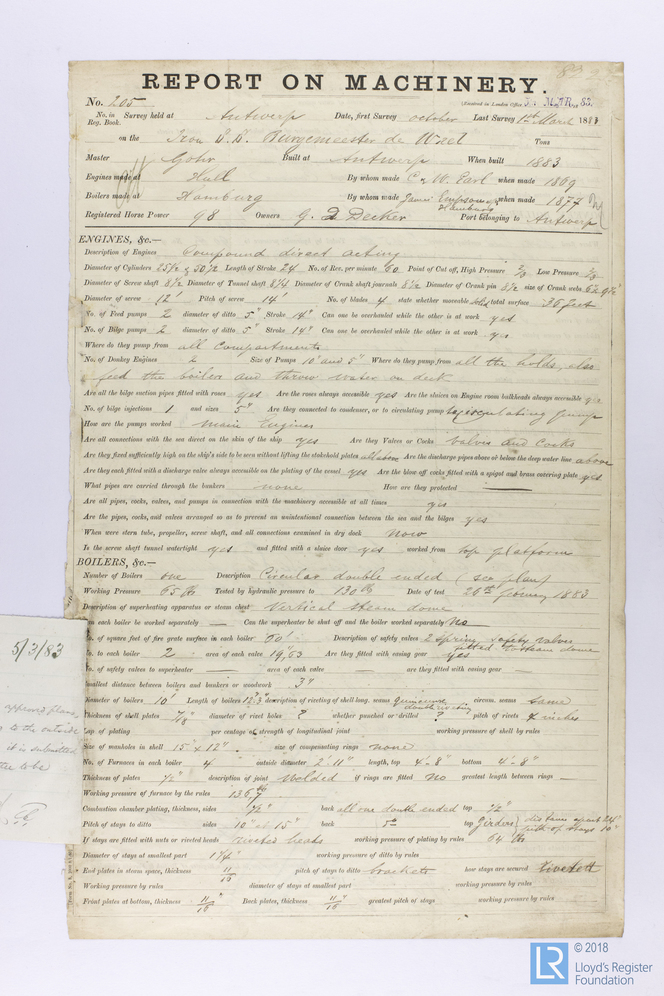 REPORT ON MACHINERY.
No. 205
(Received in London Office MAR. 83.
No. in Reg. Book. Survey held at Antwerp Date, first Survey october Last Survey 1st March 1883
on the Iron S.S. Burgemeester de Wael Tons
Master Gohr Built at Antwerp When built 1883
Engines made at Hull By whom made C & W. Earl when made 1869
Boilers made at Hamburg By whom made Hamburg when made 1877
Registered Horse Power 98 Owners G. De Decker Port belonging to Antwerp
ENGINES, &c.—
Description of Engines Compound direct acting
Diameter of Cylinders 25½ & 50½ Length of Stroke 24 No. of Rev. per minute 60 Point of Cut off, High Pressure ⅔ Low Pressure ⅔
Diameter of Screw shaft 8½ Diameter of Tunnel shaft 8¼ Diameter of Crank shaft journals 8½ Diameter of Crank pin 8½ size of Crank webs
Diameter of screw 12' Pitch of screw 14' No. of blades 4 state whether moveable solid total surface 36 feet
No. of Feed pumps 2 diameter of ditto 5" Stroke 14" Can one be overhauled while the other is at work yes
No. of Bilge pumps 2 diameter of ditto 5" Stroke 14" Can one be overhauled while the other is at work yes
Where do they pump from all Compartments
No. of Donkey Engines 2 Size of Pumps 10" and 5" Where do they pump from all the holds, also
feed the boilers and throw water on deck
Are all the bilge suction pipes fitted with roses yes Are the roses always accessible yes Are the sluices on Engine room bulkheads always accessible yes
No. of bilge injections 1 and sizes 5" Are they connected to condenser, or to circulating pump to circulating pump
How are the pumps worked Main Engines
Are all connections with the sea direct on the skin of the ship yes Are they Valves or Cocks valves and Cocks
Are they fixed sufficiently high on the ship's side to be seen without lifting the stokehold plates Are the discharge pipes above or below the deep water line above
Are they each fitted with a discharge valve always accessible on the plating of the vessel yes Are the blow off cocks fitted with a spigot and brass covering plate yes
What pipes are carried through the bunkers none How are they protected —
Are all pipes, cocks, valves, and pumps in connection with the machinery accessible at all times yes
Are the pipes, cocks, and valves arranged so as to prevent an unintentional connection between the sea and the bilges yes
When were stern tube, propeller, screw shaft, and all connections examined in dry dock now
Is the screw shaft tunnel watertight yes and fitted with a sluice door yes worked from top platform
BOILERS, &c.—
Number of Boilers one Description Circular double ended (see plan)
Working Pressure 65 lbs Tested by hydraulic pressure to 130 lbs Date of test 26th febuary 1883
Description of superheating apparatus or steam chest Vertical steam dome
Can each boiler be worked separately — Can the superheater be shut off and the boiler worked separately No
No. of square feet of fire grate surface in each boiler 60' Description of safety valves 2 spring safety valves
fitted to steam dome
No. to each boiler 2 area of each valve 19"63 Are they fitted with easing gear yes
No. of safety valves to superheater — area of each valve — are they fitted with easing gear —
Smallest distance between boilers and bunkers or woodwork 3"
Diameter of boilers 10' Length of boilers description of riveting of shell long. seams double riveting circum. seams same
Thickness of shell plates ⅞ diameter of rivet holes ? whether punched or drilled ? pitch of rivets 4 inches
Lap of plating per centage of strength of longitudinal joint working pressure of shell by rules
Size of manholes in shell 15" x 12" size of compensating rings none
No. of Furnaces in each boiler 4 outside diameter 2' 11" length, top 4'-8" bottom 4'-8"
Thickness of plates ½" description of joint Welded if rings are fitted No greatest length between rings —
Working pressure of furnace by the rules
Combustion chamber plating, thickness, sides ½" back all one double ended top ½"
Pitch of stays to ditto sides 10" x 15" back top Girders distance apart
pitch of stays 10"
If stays are fitted with nuts or riveted heads riveted heads working pressure of plating by rules 64 lbs
Diameter of stays at smallest part 1¼" working pressure of ditto by rules
End plates in steam space, thickness 11/16 pitch of stays to ditto brackets how stays are secured
Working pressure by rules diameter of stays at smallest part working pressure by rules
Front plates at bottom, thickness 11/16 Back plates, thickness 11/16 greatest pitch of stays working pressure by rules
5/3/83
approved plans,
to the outside
it is submitted
to be
© 2018
LR
Lloyd's Register
Foundation